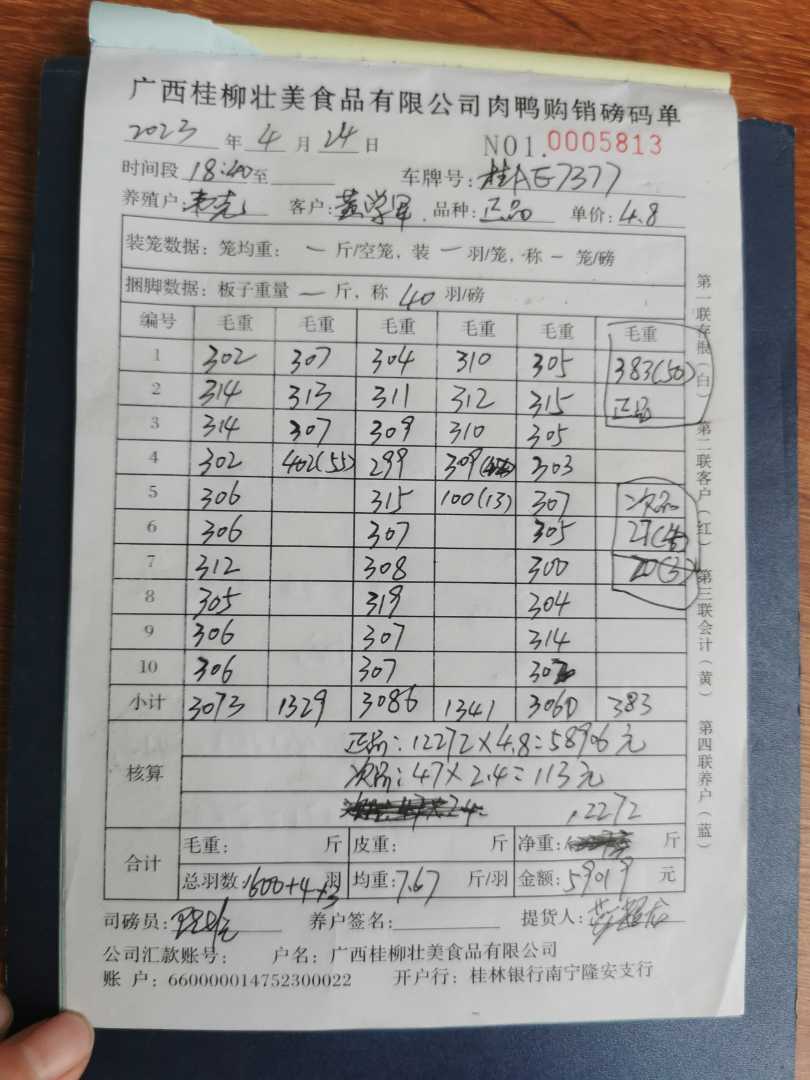 广西桂柳壮美食品有限公司肉鸭购销磅码单
2023 年 4 月 24 日 NO1.0005813
时间段 18:40 至 车牌号: 桂AE7377
养殖户: 客户: 黄学军 品种: 正品 单价: 4.8
装笼数据: 笼均重: 一 斤/空笼, 装 一 羽/笼, 称 一 笼/磅
捆脚数据: 板子重量 一 斤, 称 40 羽/磅
编号 毛重 毛重 毛重 毛重 毛重 毛重
1 302 307 304 310 305 383(50)
2 314 313 311 312 315 正品
3 314 307 309 310 305
4 302 402(55) 299 309 303
5 306 315 100(13) 307 次品
6 306 307 305 27(4)
7 312 308 300 20(3)
8 305 319 304
9 306 307 314
10 306 307 302
小计 3073 1329 3086 1341 3060 383
核算 正品: 12272×4.8=58906元
次品: 47×2.4=113元
12272
合计 毛重: 斤 皮重: 斤 净重: 斤
总羽数: 1600+4+3 羽 均重: 7.67 斤/羽 金额: 59019 元
司磅员: 养户签名: 提货人:
公司汇款账号: 户名: 广西桂柳壮美食品有限公司
账 户: 660000014752300022 开户行: 桂林银行南宁隆安支行
第一联存根(白) 第二联客户(红) 第三联会计(黄) 第四联养户(蓝)